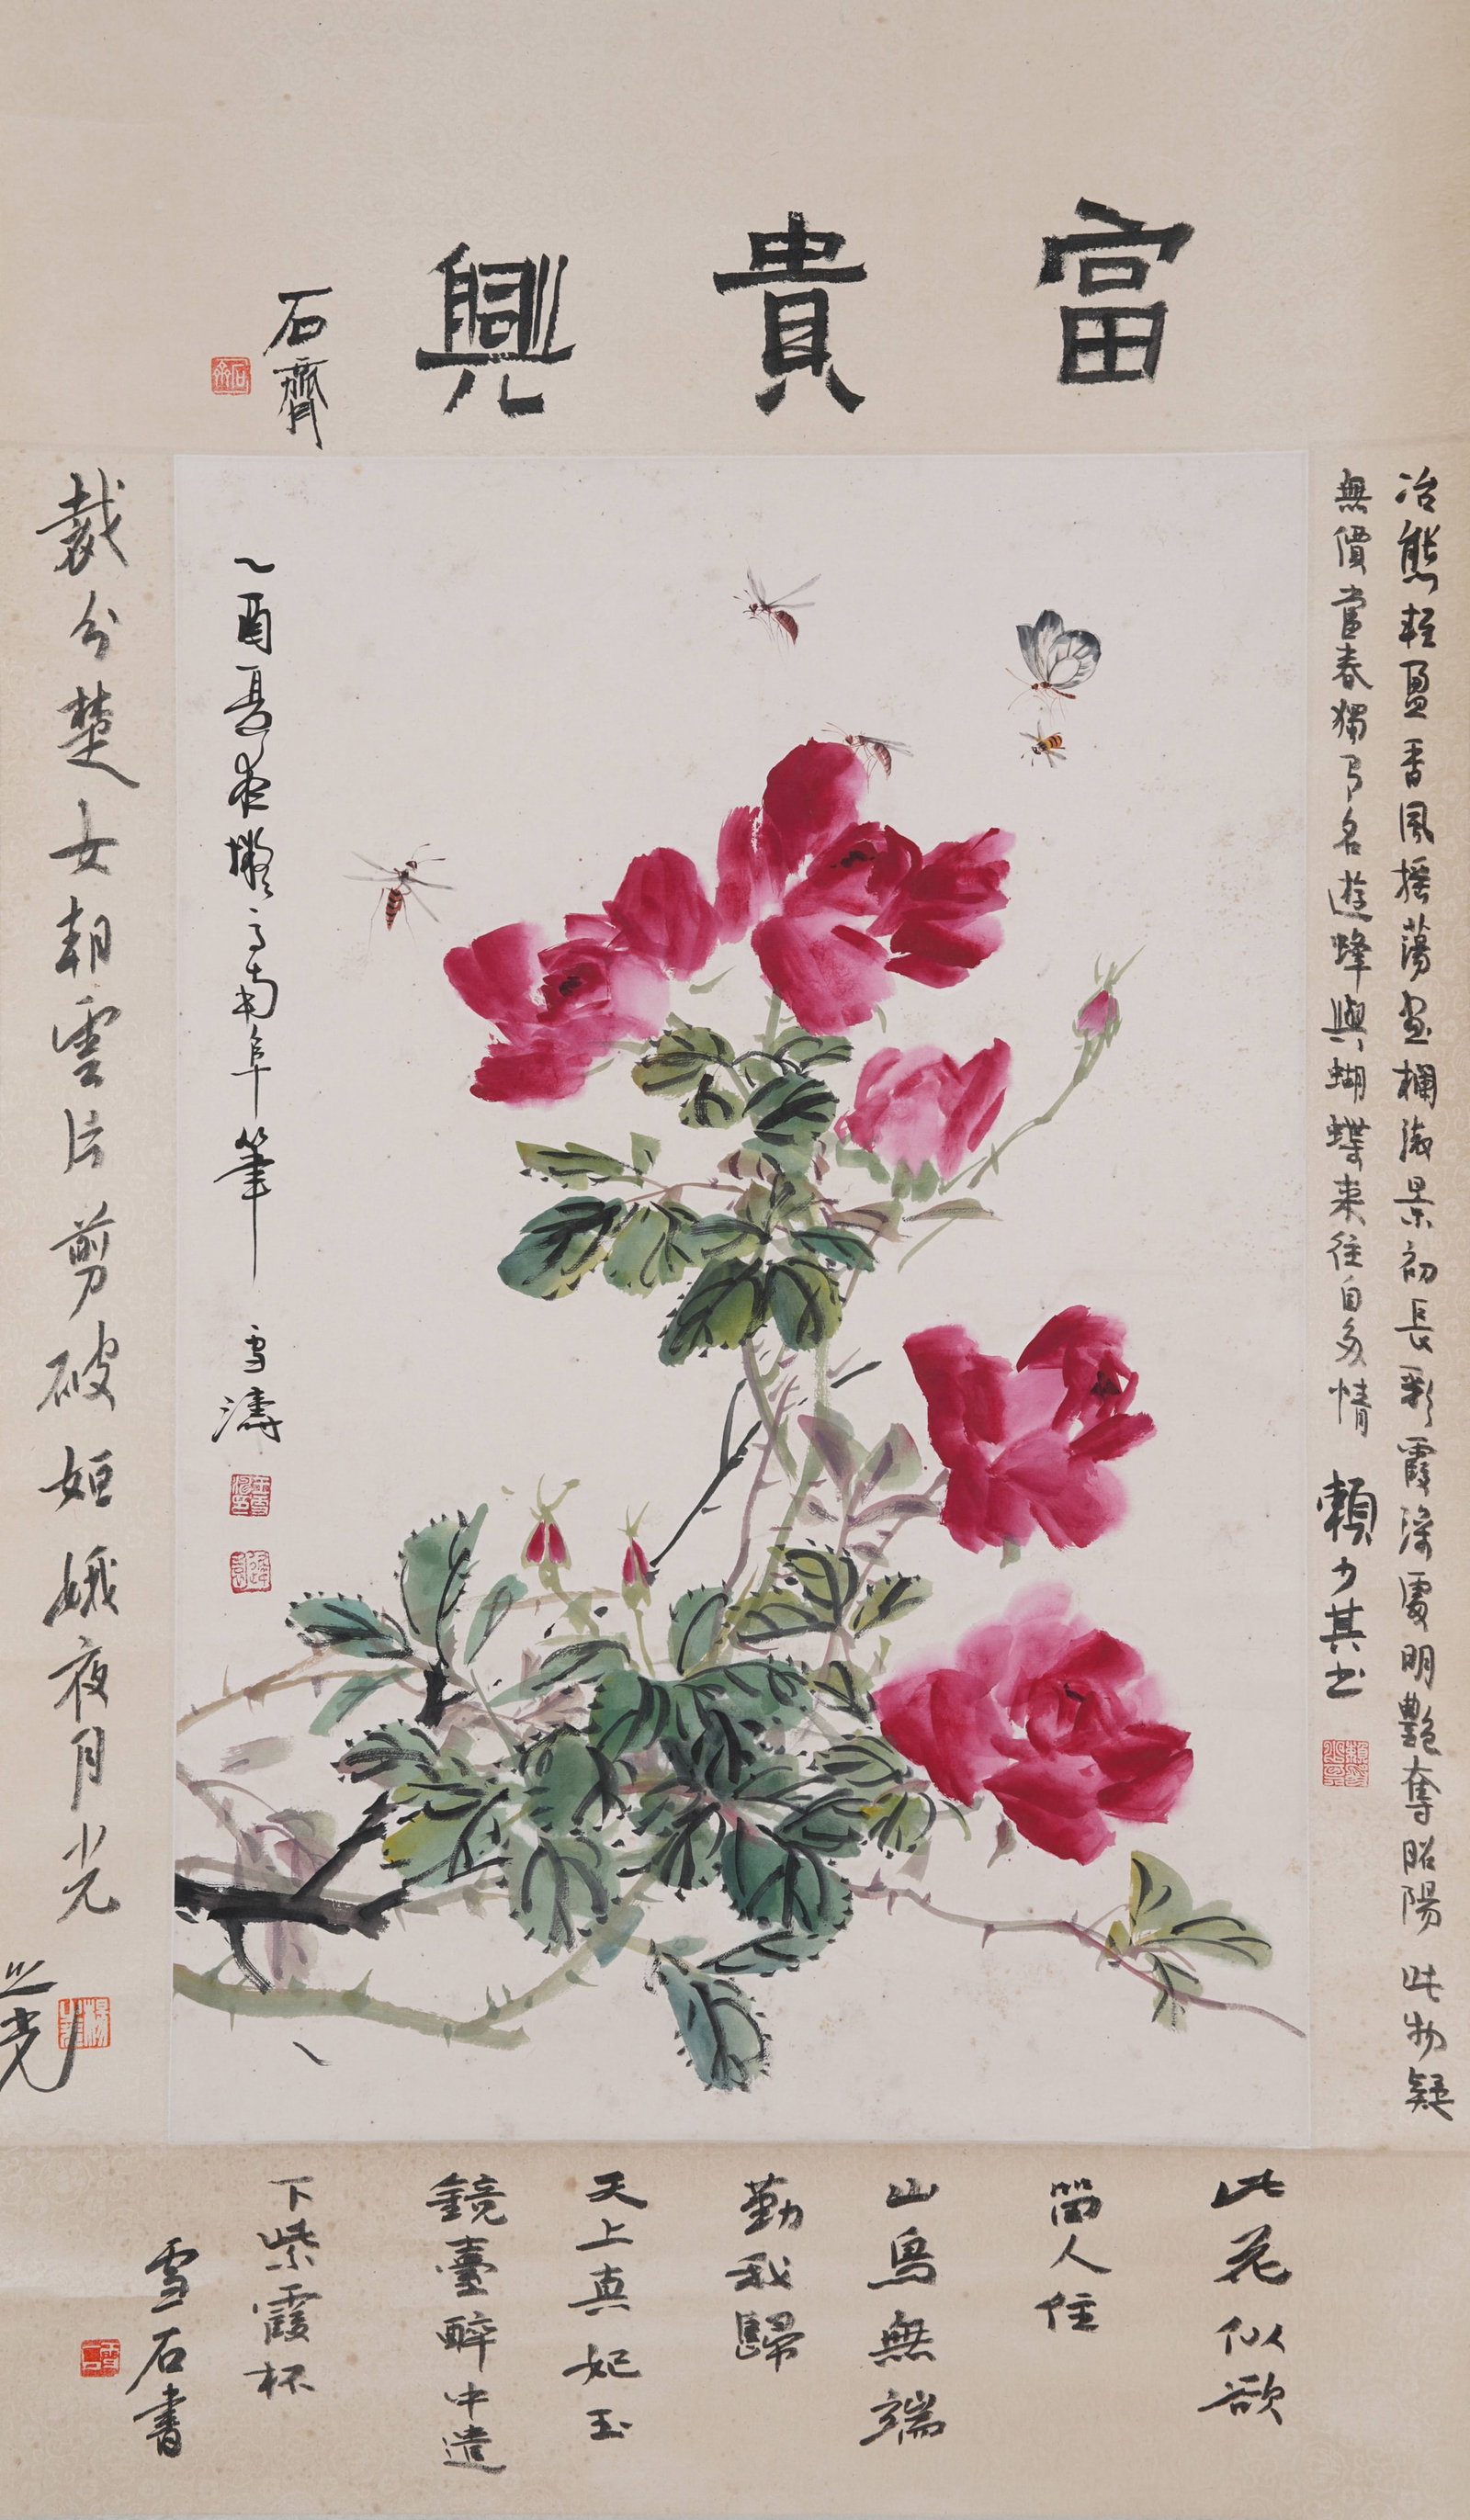 富貴興
石齊
冶態輕盈香風搖蕩畫欄淑景初長彩霞深處明艷奪昭陽此物疑
無價當春獨占名遊蜂與蝴蝶來往自多情
賴少其書
乙酉夏夜擬高南阜筆
雪濤
裁分楚女朝雲片剪破姮娥夜月光
之光
此花似欲
留人住
山鳥無端
勸我歸
天上真妃玉
鏡臺醉中遺
下紫霞杯
雪石書